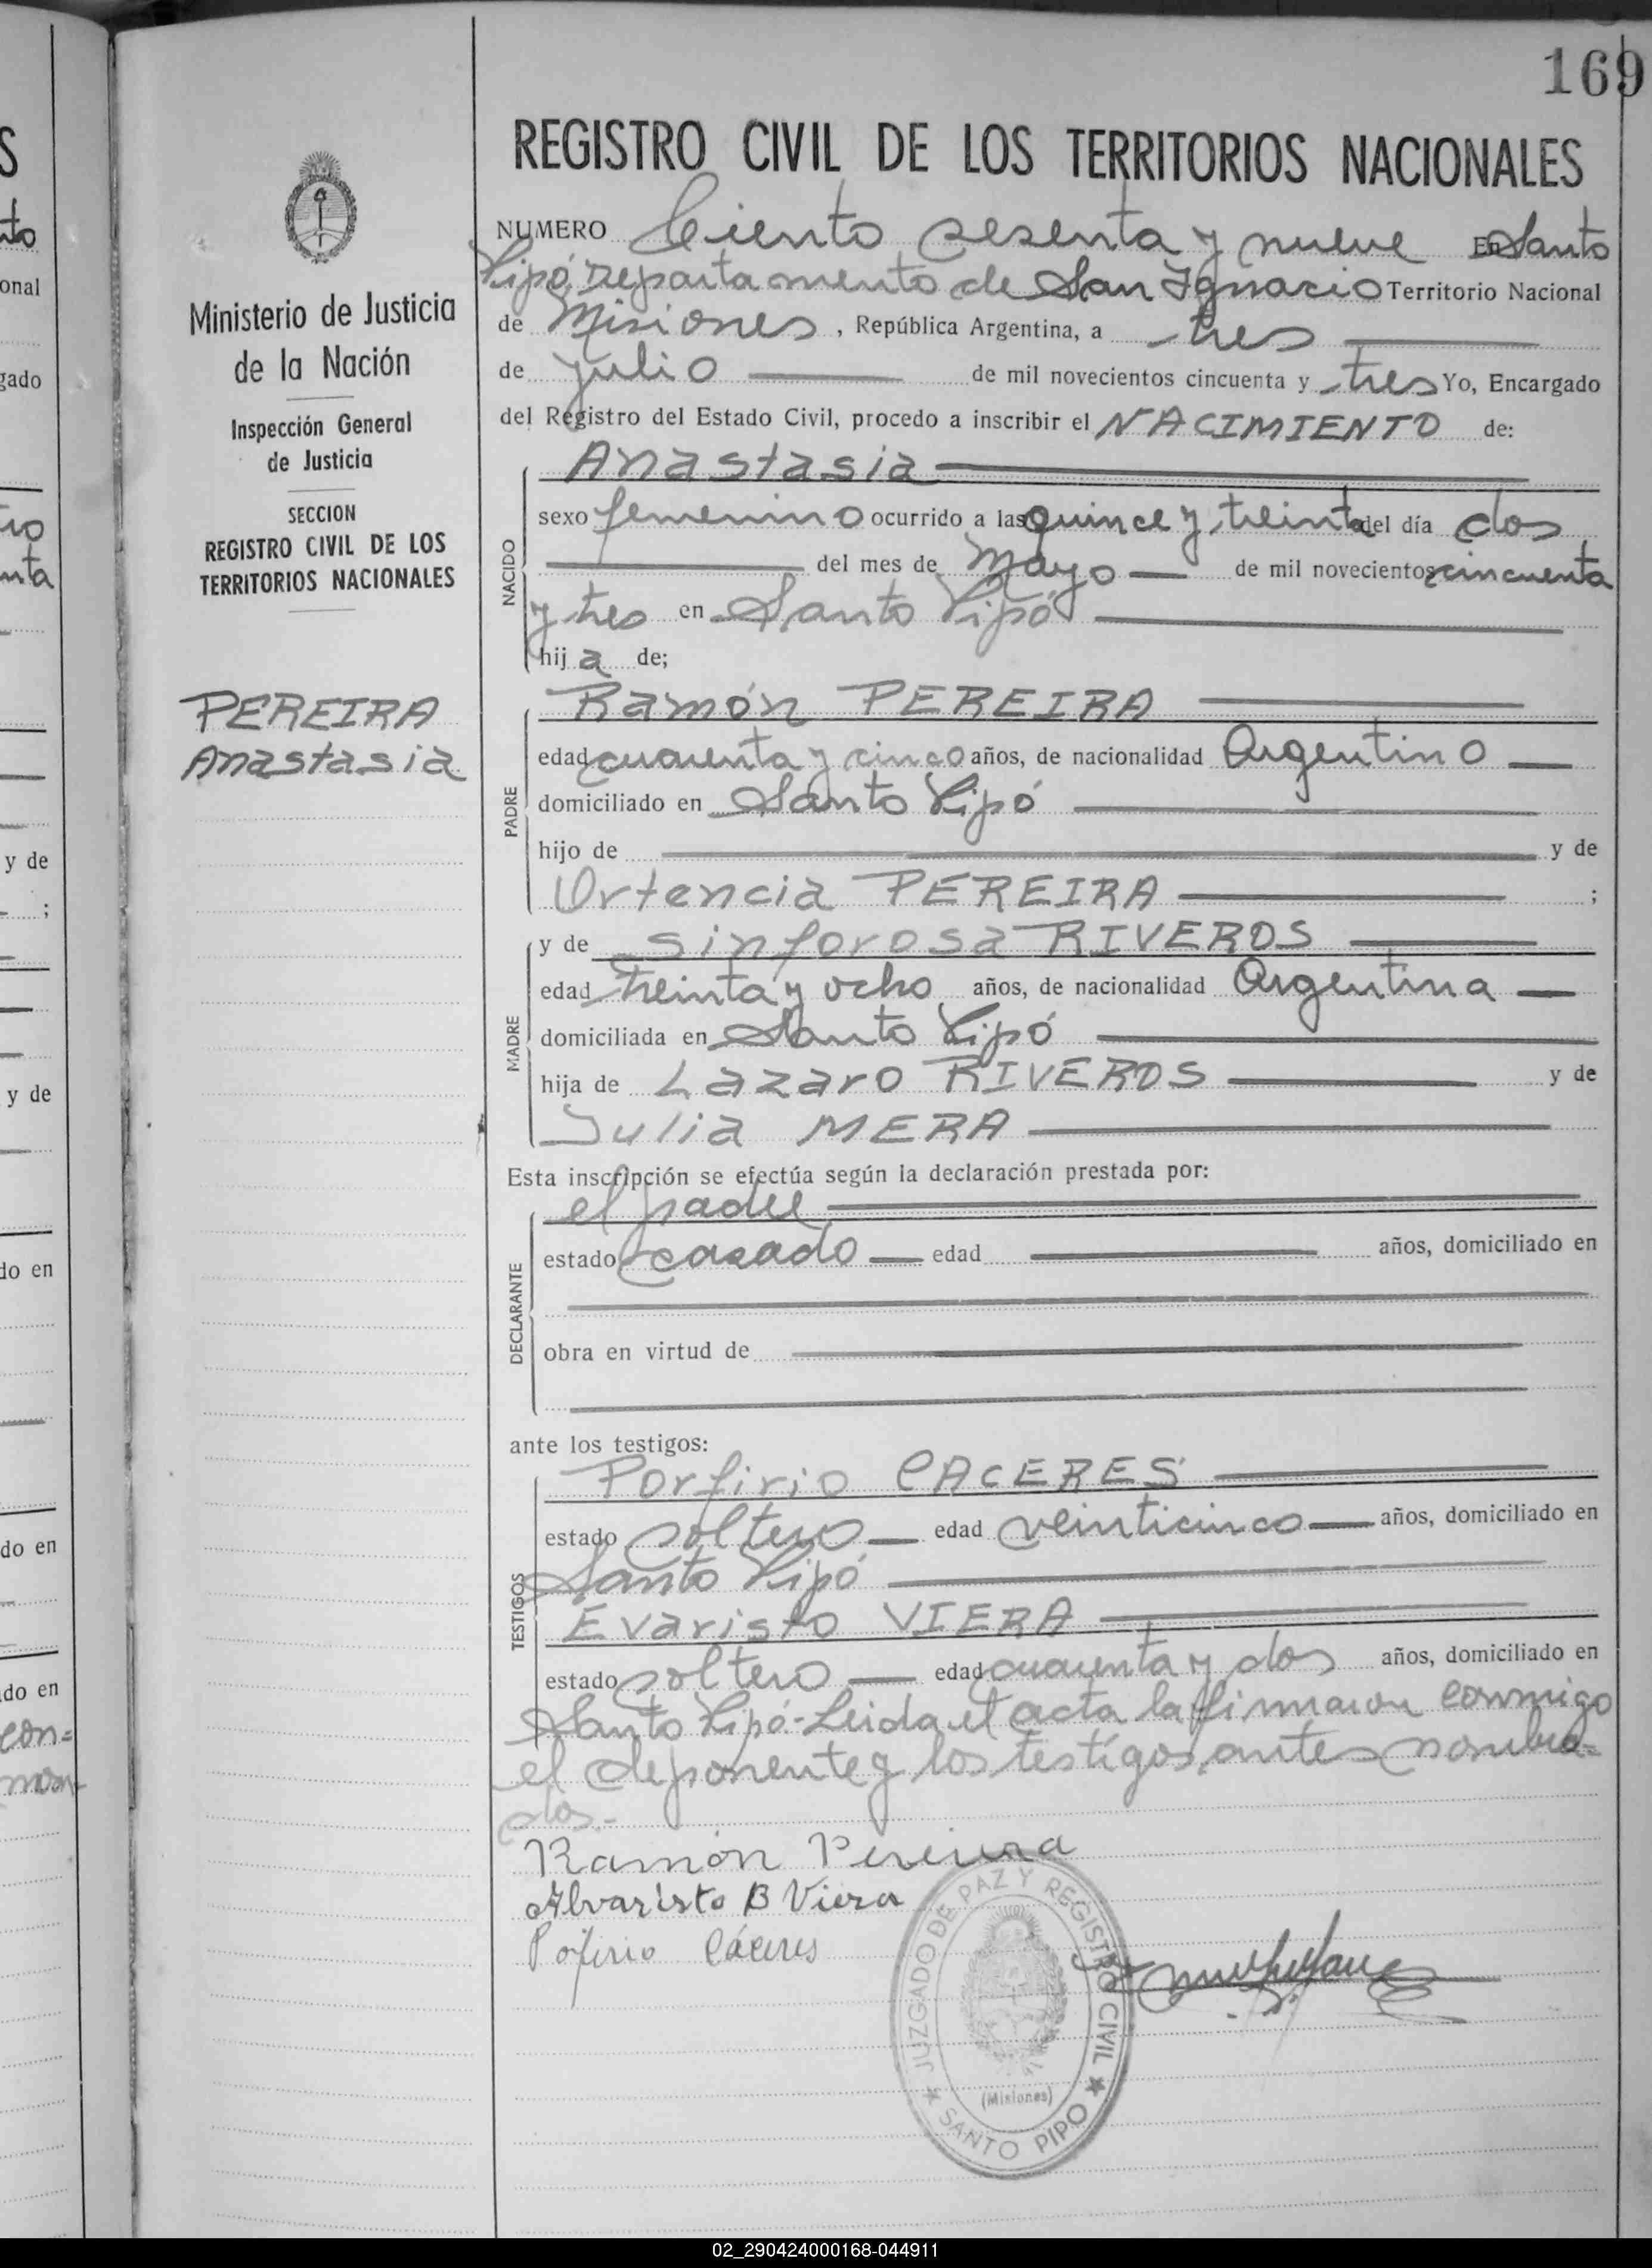 169
REGISTRO CIVIL DE LOS TERRITORIOS NACIONALES
Ministerio de Justicia
de la Nación
Inspección General
de Justicia
SECCION
REGISTRO CIVIL DE LOS
TERRITORIOS NACIONALES
PEREIRA
Anastasia
NUMERO Ciento sesenta y nueve En Santo
Pipó, Departamento de San Ignacio Territorio Nacional
de Misiones, República Argentina, a tres
de julio de mil novecientos cincuenta y tres Yo, Encargado
del Registro del Estado Civil, procedo a inscribir el NACIMIENTO de:
NACIDO
Anastasia
sexo femenino ocurrido a las quince y treinta del día dos
del mes de Mayo de mil novecientos cincuenta
y tres en Santo Pipó
hija de;
PADRE
Ramón PEREIRA
edad cuarenta y cinco años, de nacionalidad Argentino
domiciliado en Santo Pipó
hijo de y de
Ortencia PEREIRA ;
MADRE
y de Sinforosa RIVEROS
edad treinta y ocho años, de nacionalidad Argentina
domiciliada en Santo Pipó
hija de Lazaro RIVEROS y de
Julia MERA
Esta inscripción se efectúa según la declaración prestada por:
DECLARANTE
el padre
estado casado edad años, domiciliado en
obra en virtud de
ante los testigos:
TESTIGOS
Porfirio CACERES
estado soltero edad veinticinco años, domiciliado en
Santo Pipó
Evaristo VIERA
estado soltero edad cuarenta y dos años, domiciliado en
Santo Pipó.- Leida el acta la firmaron conmigo
el deponente y los testigos antes nombra=
dos.-
Ramón Pereira
Alvaristo B Viera
Pofirio Cáceres
JUZGADO DE PAZ Y REGISTRO CIVIL
(Misiones)
SANTO PIPO
02_290424000168-044911